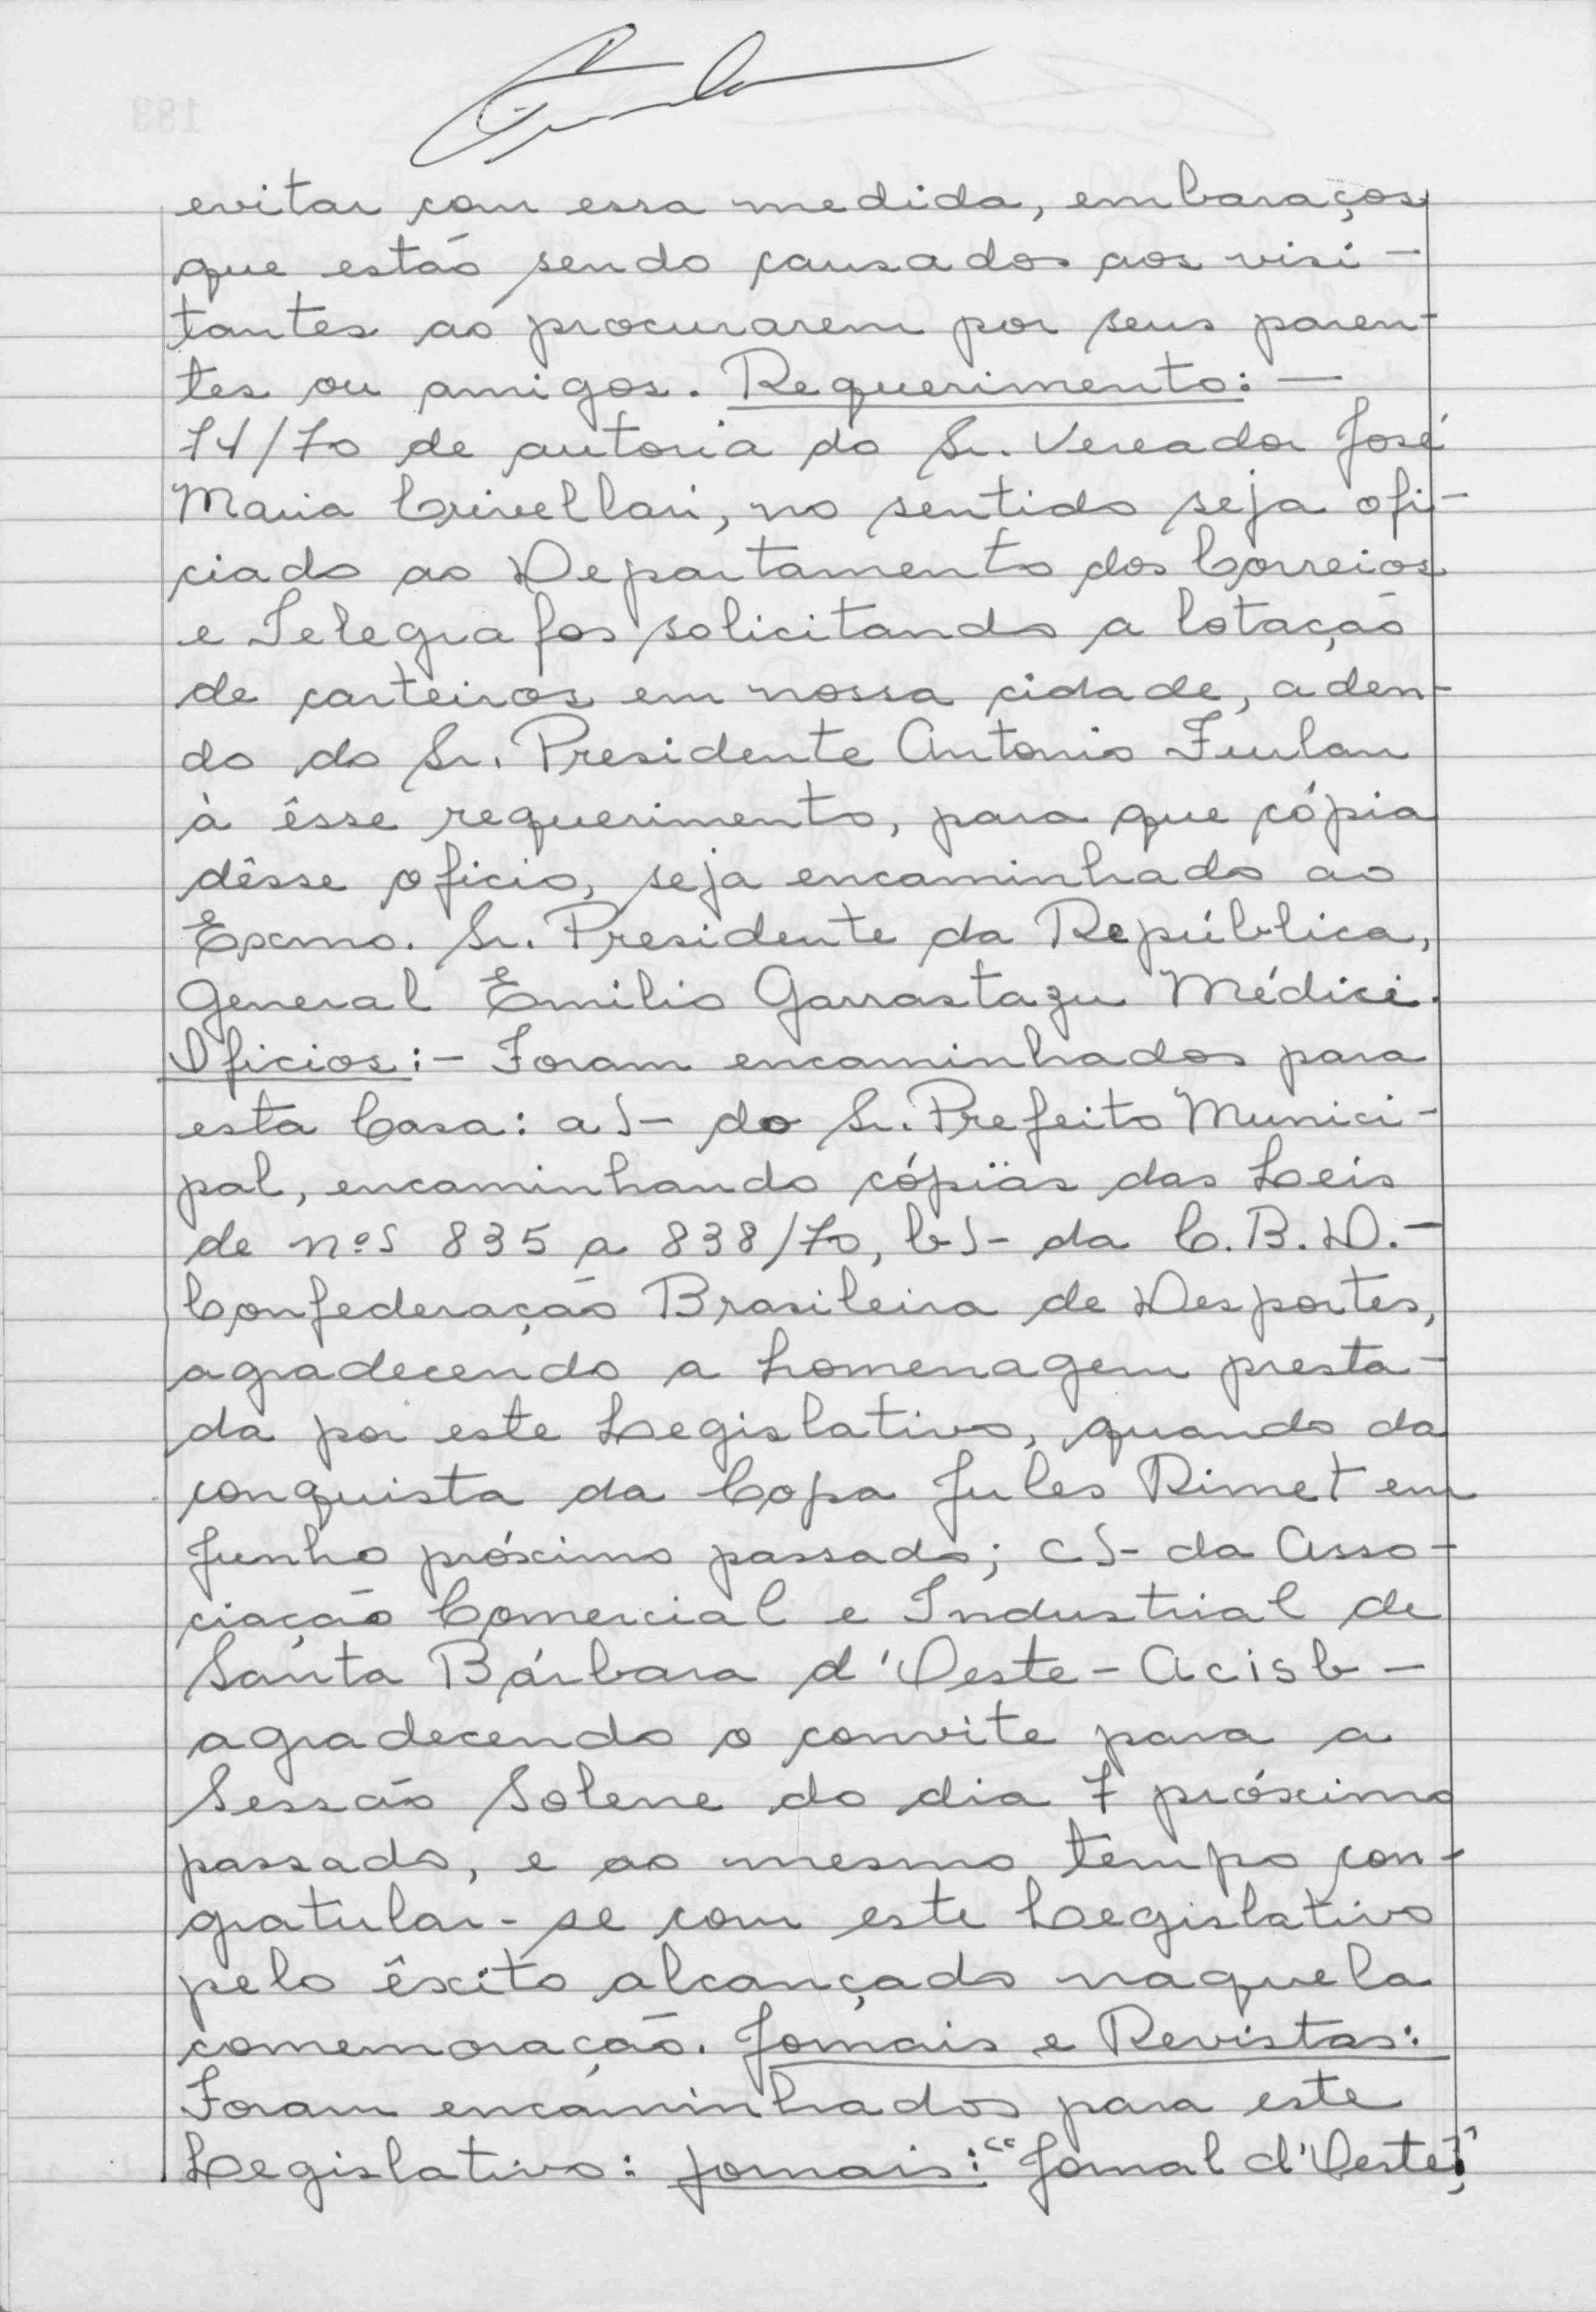 evitar com essa medida, embaraços
que estão sendo causados aos visi-
tantes ao procurarem por seus paren-
tes ou amigos. Requerimento: -
74/70 de autoria do Sr. Vereador José
Maria Crivellari, no sentido seja ofi-
ciado ao Departamento dos Correios
e Telegrafos solicitando a lotação
de carteiros em nossa cidade, aden-
do do Sr. Presidente Antonio Furlan
à êsse requerimento, para que cópia
dêsse oficio, seja encaminhado ao
Exmo. Sr. Presidente da República,
General Emilio Garrastazu Médici.
Oficios: - Foram encaminhados para
esta Casa: a)- do Sr. Prefeito Munici-
pal, encaminhando cópias das Leis
de nºs 835 a 838/70, b)- da C.B.D. -
Confederação Brasileira de Desportes,
agradecendo a homenagem presta-
da por este Legislativo, quando da
conquista da Copa Jules Rimet em
Junho próximo passado; c)- da Asso-
ciação Comercial e Industrial de
Santa Bárbara d'Oeste - Acisb -
agradecendo o convite para a
Sessão Solene do dia 7 próximo
passado, e ao mesmo tempo con-
gratular-se com este Legislativo
pelo êxito alcançado naquela
comemoração. Jornais e Revistas:
Foram encaminhados para este
Legislativo: jornais: "Jornal d'Oeste";